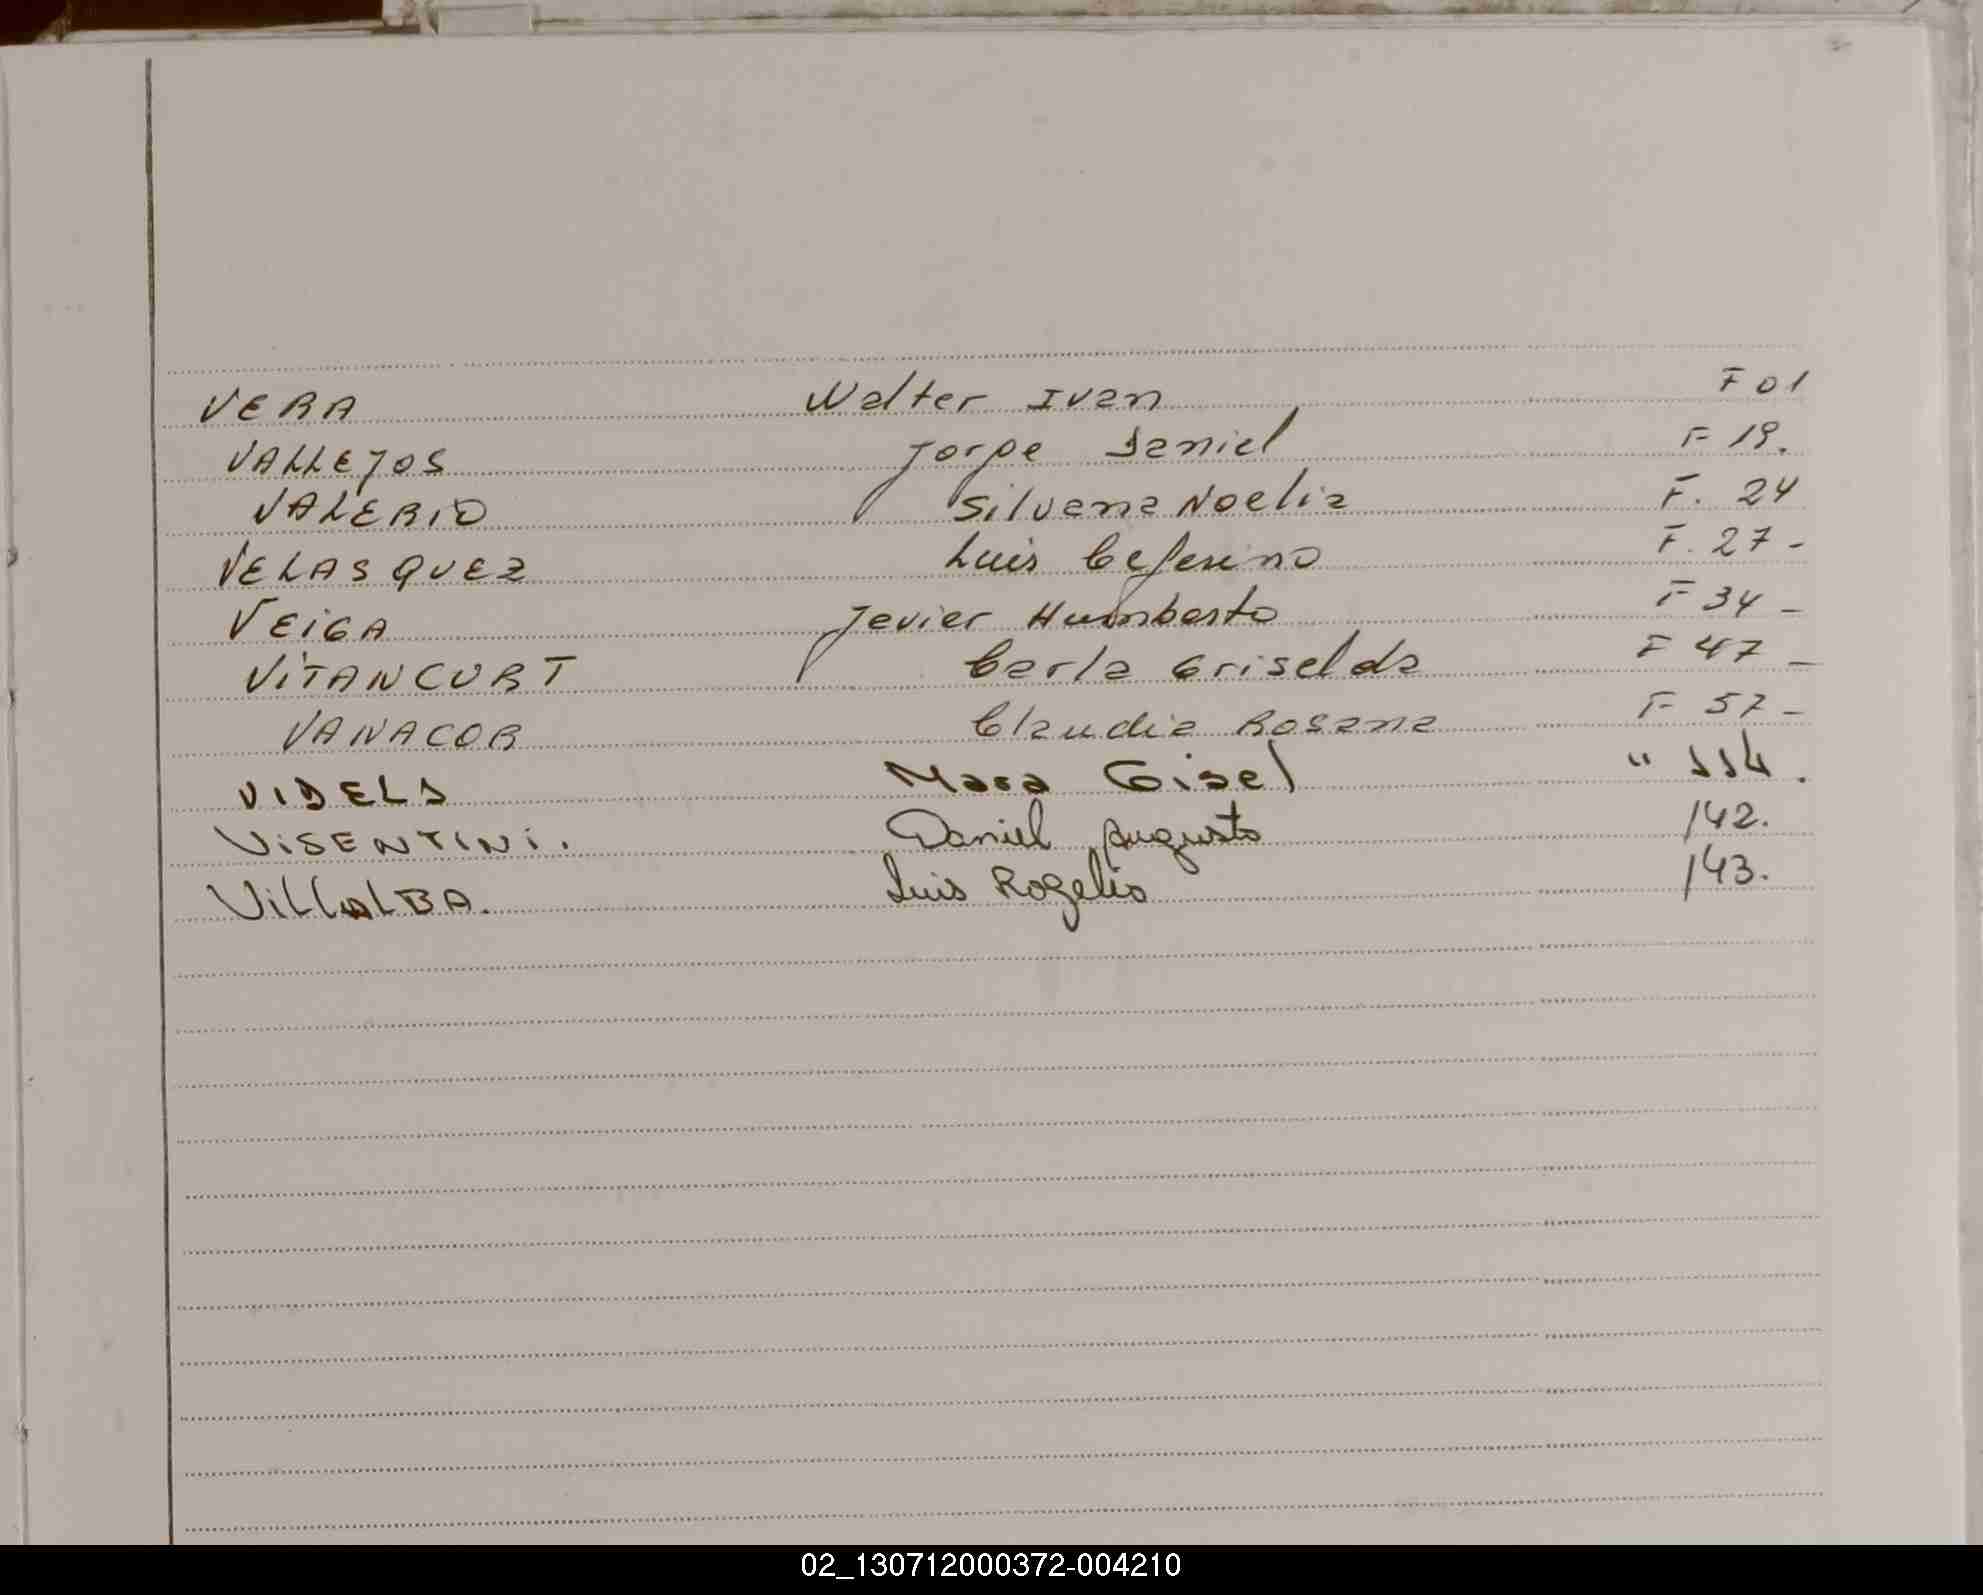 VERA Walter Ivan F 01
VALLEJOS Jorge Daniel F 19.
VALERIO Silvana Noelia F. 24
VELASQUEZ Luis Ceferino F. 27 -
VEIGA Javier Humberto F 34 -
VITANCURT Carla Griselda F 47 -
VANACOR Claudia Rosana F 57 -
VIDELA Mara Gisel " 114.
ViSENTiNi. Daniel Augusto 142.
ViLLALBA. Luis Rogelio 143.
02_130712000372-004210